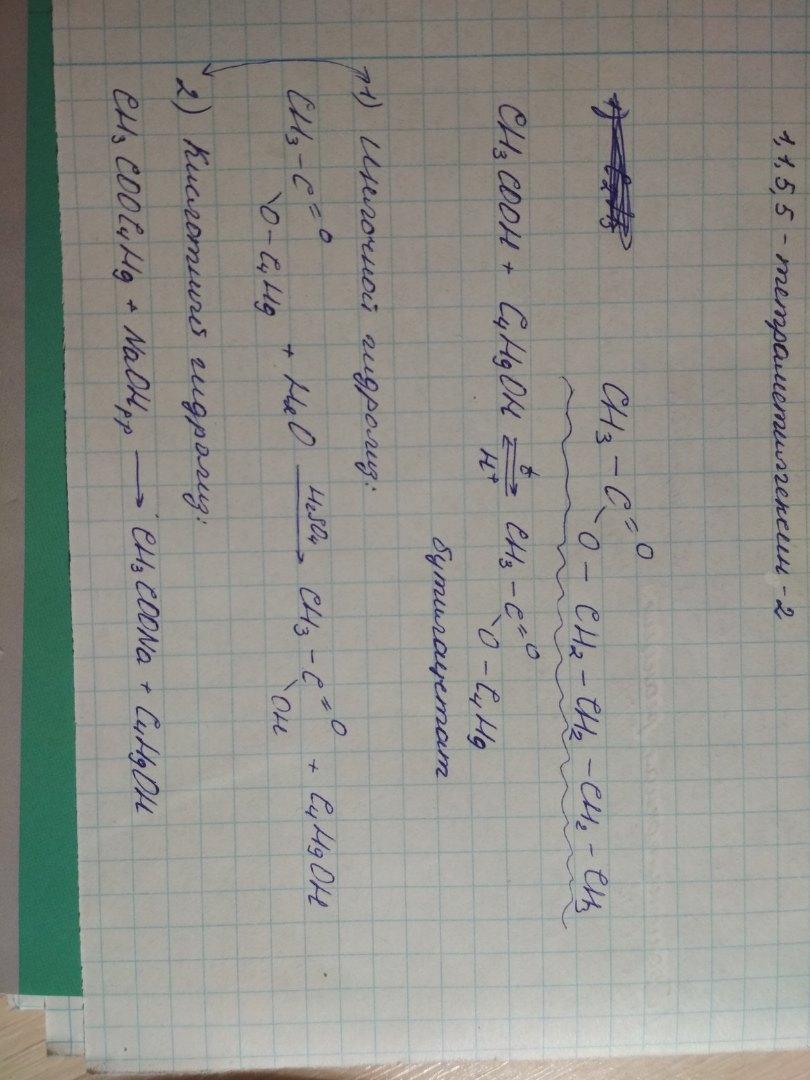 1,1,5,5 - тетраметилгексин - 2
CH3 - C = O
O - CH2 - CH2 - CH2 - CH3
CH3COOH + C4H9OH ⇄ t H+ CH3 - C = O
O - C4H9
бутилацетат
1) Щелочной гидролиз:
CH3 - C = O
O - C4H9 + H2O ⟶ H2SO4 CH3 - C = O
OH + C4H9OH
2) Кислотный гидролиз:
CH3COOC4H9 + NaOH р-р ⟶ CH3COONa + C4H9OH